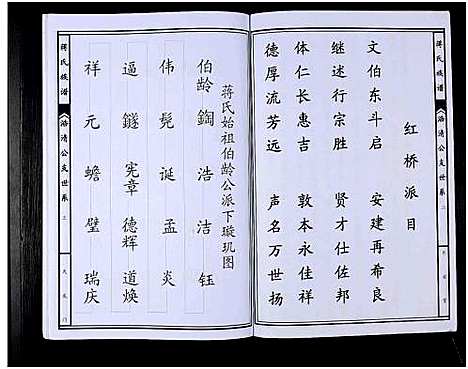 蒋氏族谱
浩清公支世系
红桥派目
文伯东斗启 安建再希良
继述行宗胜 贤才仕佐邦
体仁长惠吉 敦本永佳祥
德厚流芳远 声名万世扬
蒋氏始祖伯龄公派下璇玑图
伯龄 鋾 浩 洁 钰
伟 髡 诞 孟 炎
逼 鐩 宪章 德辉 道焕
祥 元 蟾 璧 瑞庆
蒋氏族谱
浩清公支世系 上